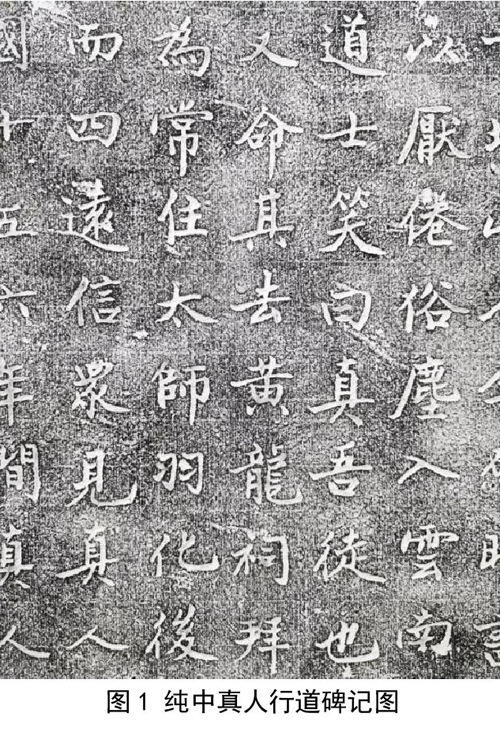 以厭倦俗塵入雲南
道士笑曰真吾徒也
又命其去黄龍祠拜
為常住太師羽化後
而四遠信眾見真人
國十五六年間真人
图1 纯中真人行道碑记图